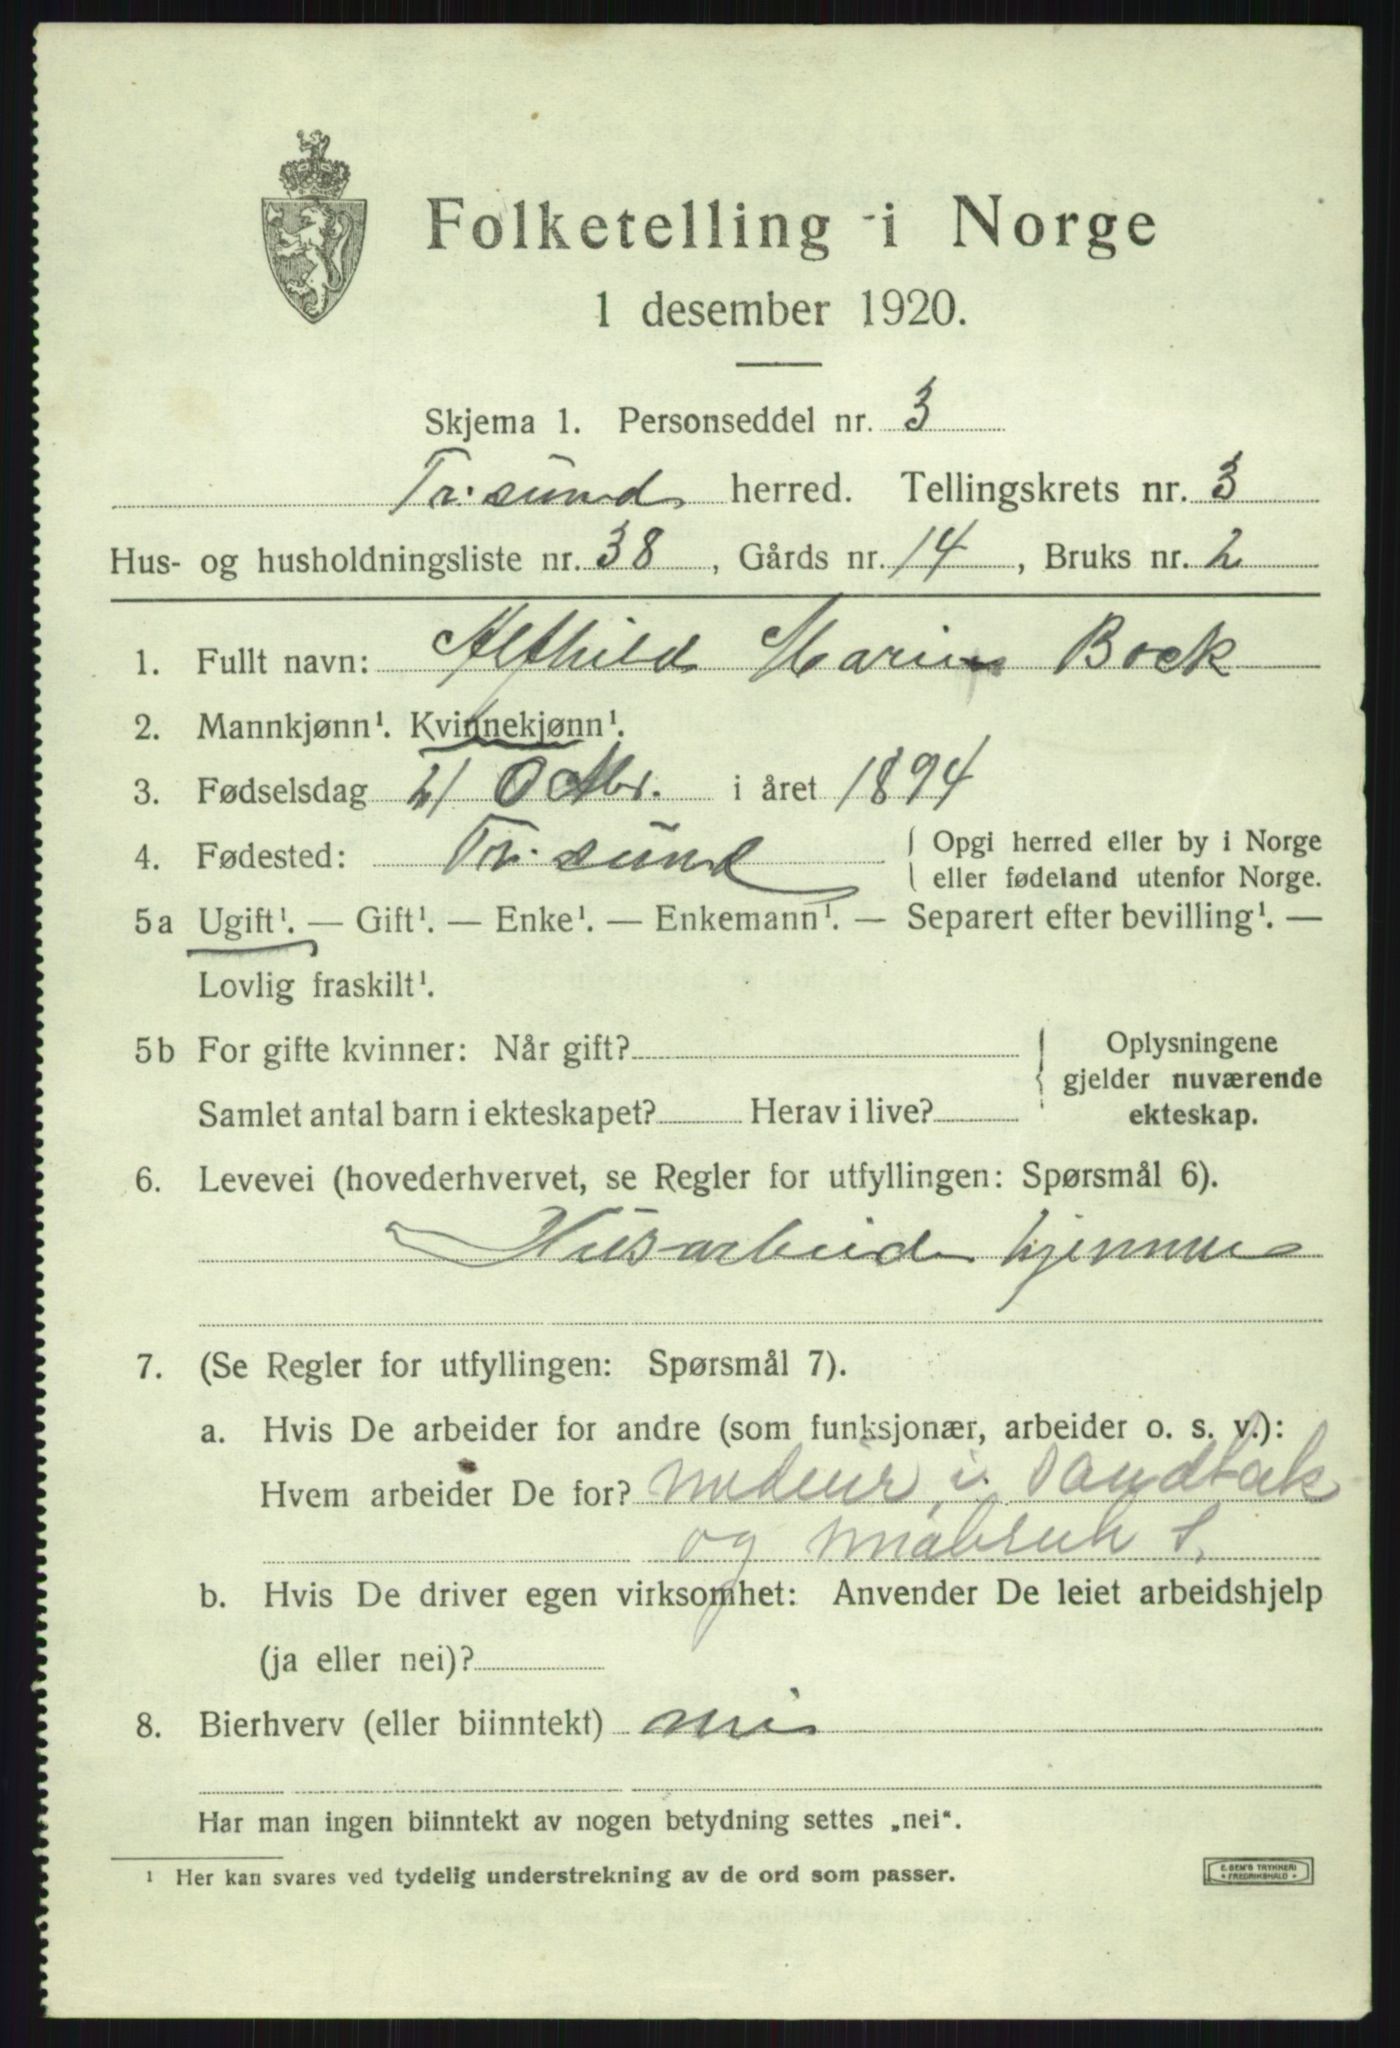 Folketelling i Norge
1 desember 1920.
Skjema 1. Personseddel nr. 3
Tr.sund herred. Tellingskrets nr. 3
Hus- og husholdningsliste nr. 38, Gårds nr. 14, Bruks nr. 2
1. Fullt navn: Alfhild Marie Bock
2. Mannkjønn¹. Kvinnekjønn¹.
3. Fødselsdag 21 Octbr. i året 1894
4. Fødested: Tr.sund { Opgi herred eller by i Norge
eller fødeland utenfor Norge.
5a Ugift¹. — Gift¹. — Enke¹. — Enkemann¹. — Separert efter bevilling¹. —
Lovlig fraskilt¹.
5b For gifte kvinner: Når gift? { Oplysningene
gjelder nuværende
Samlet antal barn i ekteskapet? Herav i live? ekteskap.
6. Levevei (hovederhvervet, se Regler for utfyllingen: Spørsmål 6).
Husarbeid hjemme
7. (Se Regler for utfyllingen: Spørsmål 7).
a. Hvis De arbeider for andre (som funksjonær, arbeider o. s. v.):
Hvem arbeider De for? i Sandtak
og
b. Hvis De driver egen virksomhet: Anvender De leiet arbeidshjelp
(ja eller nei)?
8. Bierhverv (eller biinntekt) nei
Har man ingen biinntekt av nogen betydning settes „nei“.
¹ Her kan svares ved tydelig understrekning av de ord som passer.
E. SEM'S TRYKKERI
• FREDRIKSHALD •